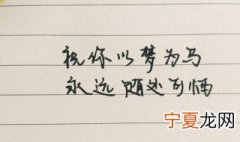 祝你以梦为马
永远随处可栖
宁夏龙网